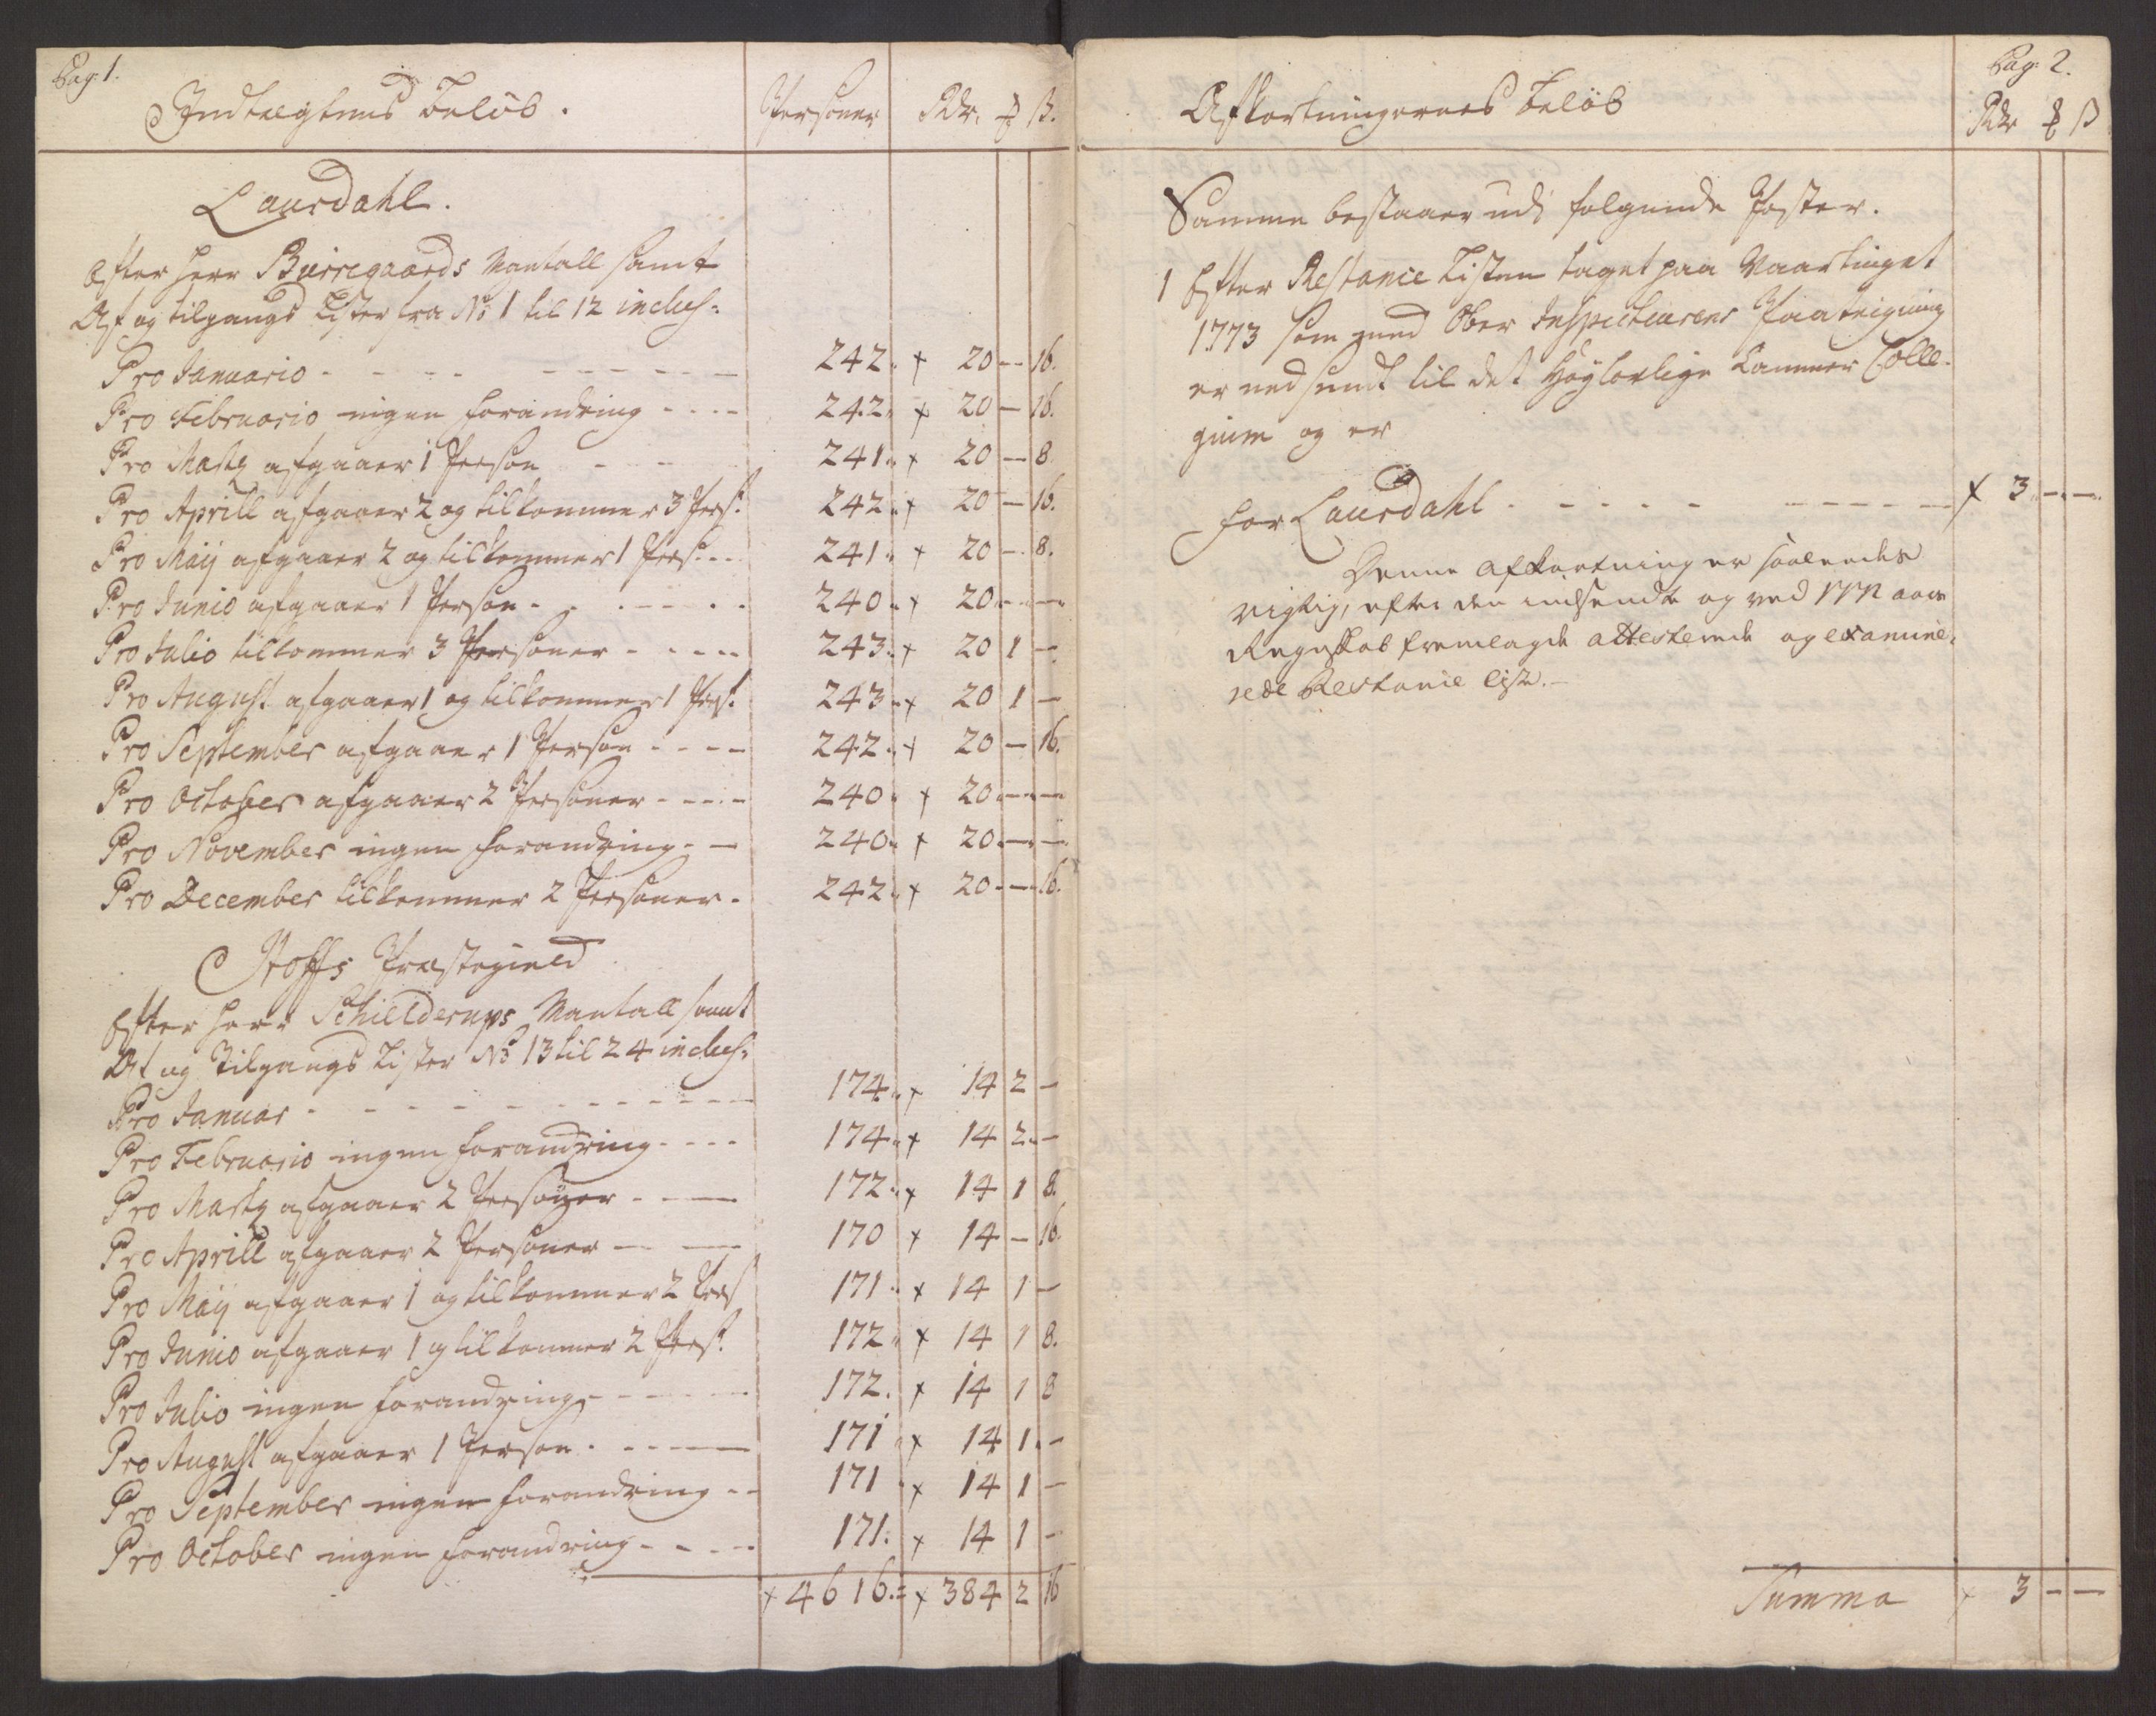 Pag: 1.
Indtægtens Beløb. Personer Rdr. ₰ ß.
Laurdahl.
Efter Herr Bierregaards Mantall samt
Af og tilgangs Lister fra No 1 til 12 inclus:
Pro Januario - - - - - - - - - 242 " + 20 - 16.
Pro Februario ingen forandring - - - - 242 " + 20 - 16.
Pro Marty afgaaer 1 Person - - - 241 " + 20 - 8.
Pro Aprill afgaaer 2 og tilkommer 3 Pers: 242 " + 20 - 16.
Pro Maij afgaaer 2 og tilkommer 1 Pers: - - 241 " + 20 - 8.
Pro Junio afgaaer 1 Person - - - - - - 240 " + 20 - -
Pro Julio tilkommer 3 Personer - - - - 243 " + 20 1 -
Pro August afgaaer 1 og tilkommer 1 Pers: 243 " + 20 1 -
Pro September afgaaer 1 Person - - - - 242 " + 20 - 16.
Pro October afgaaer 2 Personer - - - - 240 " + 20 - -
Pro November ingen forandring - - 240 " + 20 - -
Pro December tilkommer 2 Personer - 242 " + 20 - 16.
Hoffs Præstegield
Efter Herr Schielderups Mantall samt
Af og Tilgangs Lister No 13 til 24 inclus:
Pro Januar - - - - - - - - - 174 " + 14 2 -
Pro Februario ingen forandring - - - - 174 " + 14 2 -
Pro Marty afgaaer 2 Personer - - - 172 " + 14 1 8.
Pro Aprill afgaaer 2 Personer - - 170 + 14 - 16.
Pro Maij afgaaer 1 og tilkommer 2 Pers 171 " + 14 1 -
Pro Junio afgaaer 1 og tilkommer 2 Pers: 172 " + 14 1 8.
Pro Julio ingen forandring - - - - - 172. + 14 1 8
Pro August afgaaer 1 Person - - - - - 171 " + 14 1 -
Pro September ingen forandring - - 171 " + 14 1 -
Pro October ingen forandring - - - - 171. + 14 1 -
+ 4616 = + 384 2 16
Pag: 2.
Afkortningernes Beløb Rdr ₰ ß
Samme bestaaer udi følgende Poster.
1 Efter Restance Listen taget paa Vaartinget
1773 som med Ober Inspecteurens Paategning
er nedsendt til det Høylovlige Cammer Colle-
gium og er
for Laurdahl - - - - - - - - - - + 3 - -
Denne Afkortning er saaleedes
rigtig, efter den indsendte og ved 1772 aars
Regnskab fremlagde attesterede og examine-
rede Restance liste. -
Summa + 3 - -